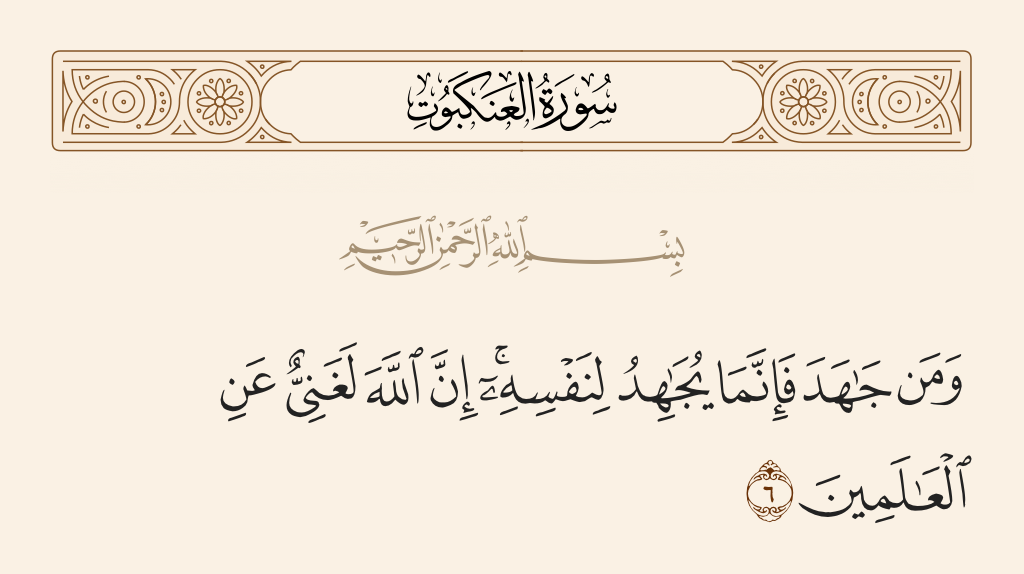 سُورَةُ الْعَنكَبُوتِ
بِسْمِ ٱللَّهِ ٱلرَّحْمَٰنِ ٱلرَّحِيمِ
وَمَن جَـٰهَدَ فَإِنَّمَا يُجَـٰهِدُ لِنَفْسِهِۦٓ ۚ إِنَّ ٱللَّهَ لَغَنِىٌّ عَنِ
ٱلْعَـٰلَمِينَ ٦